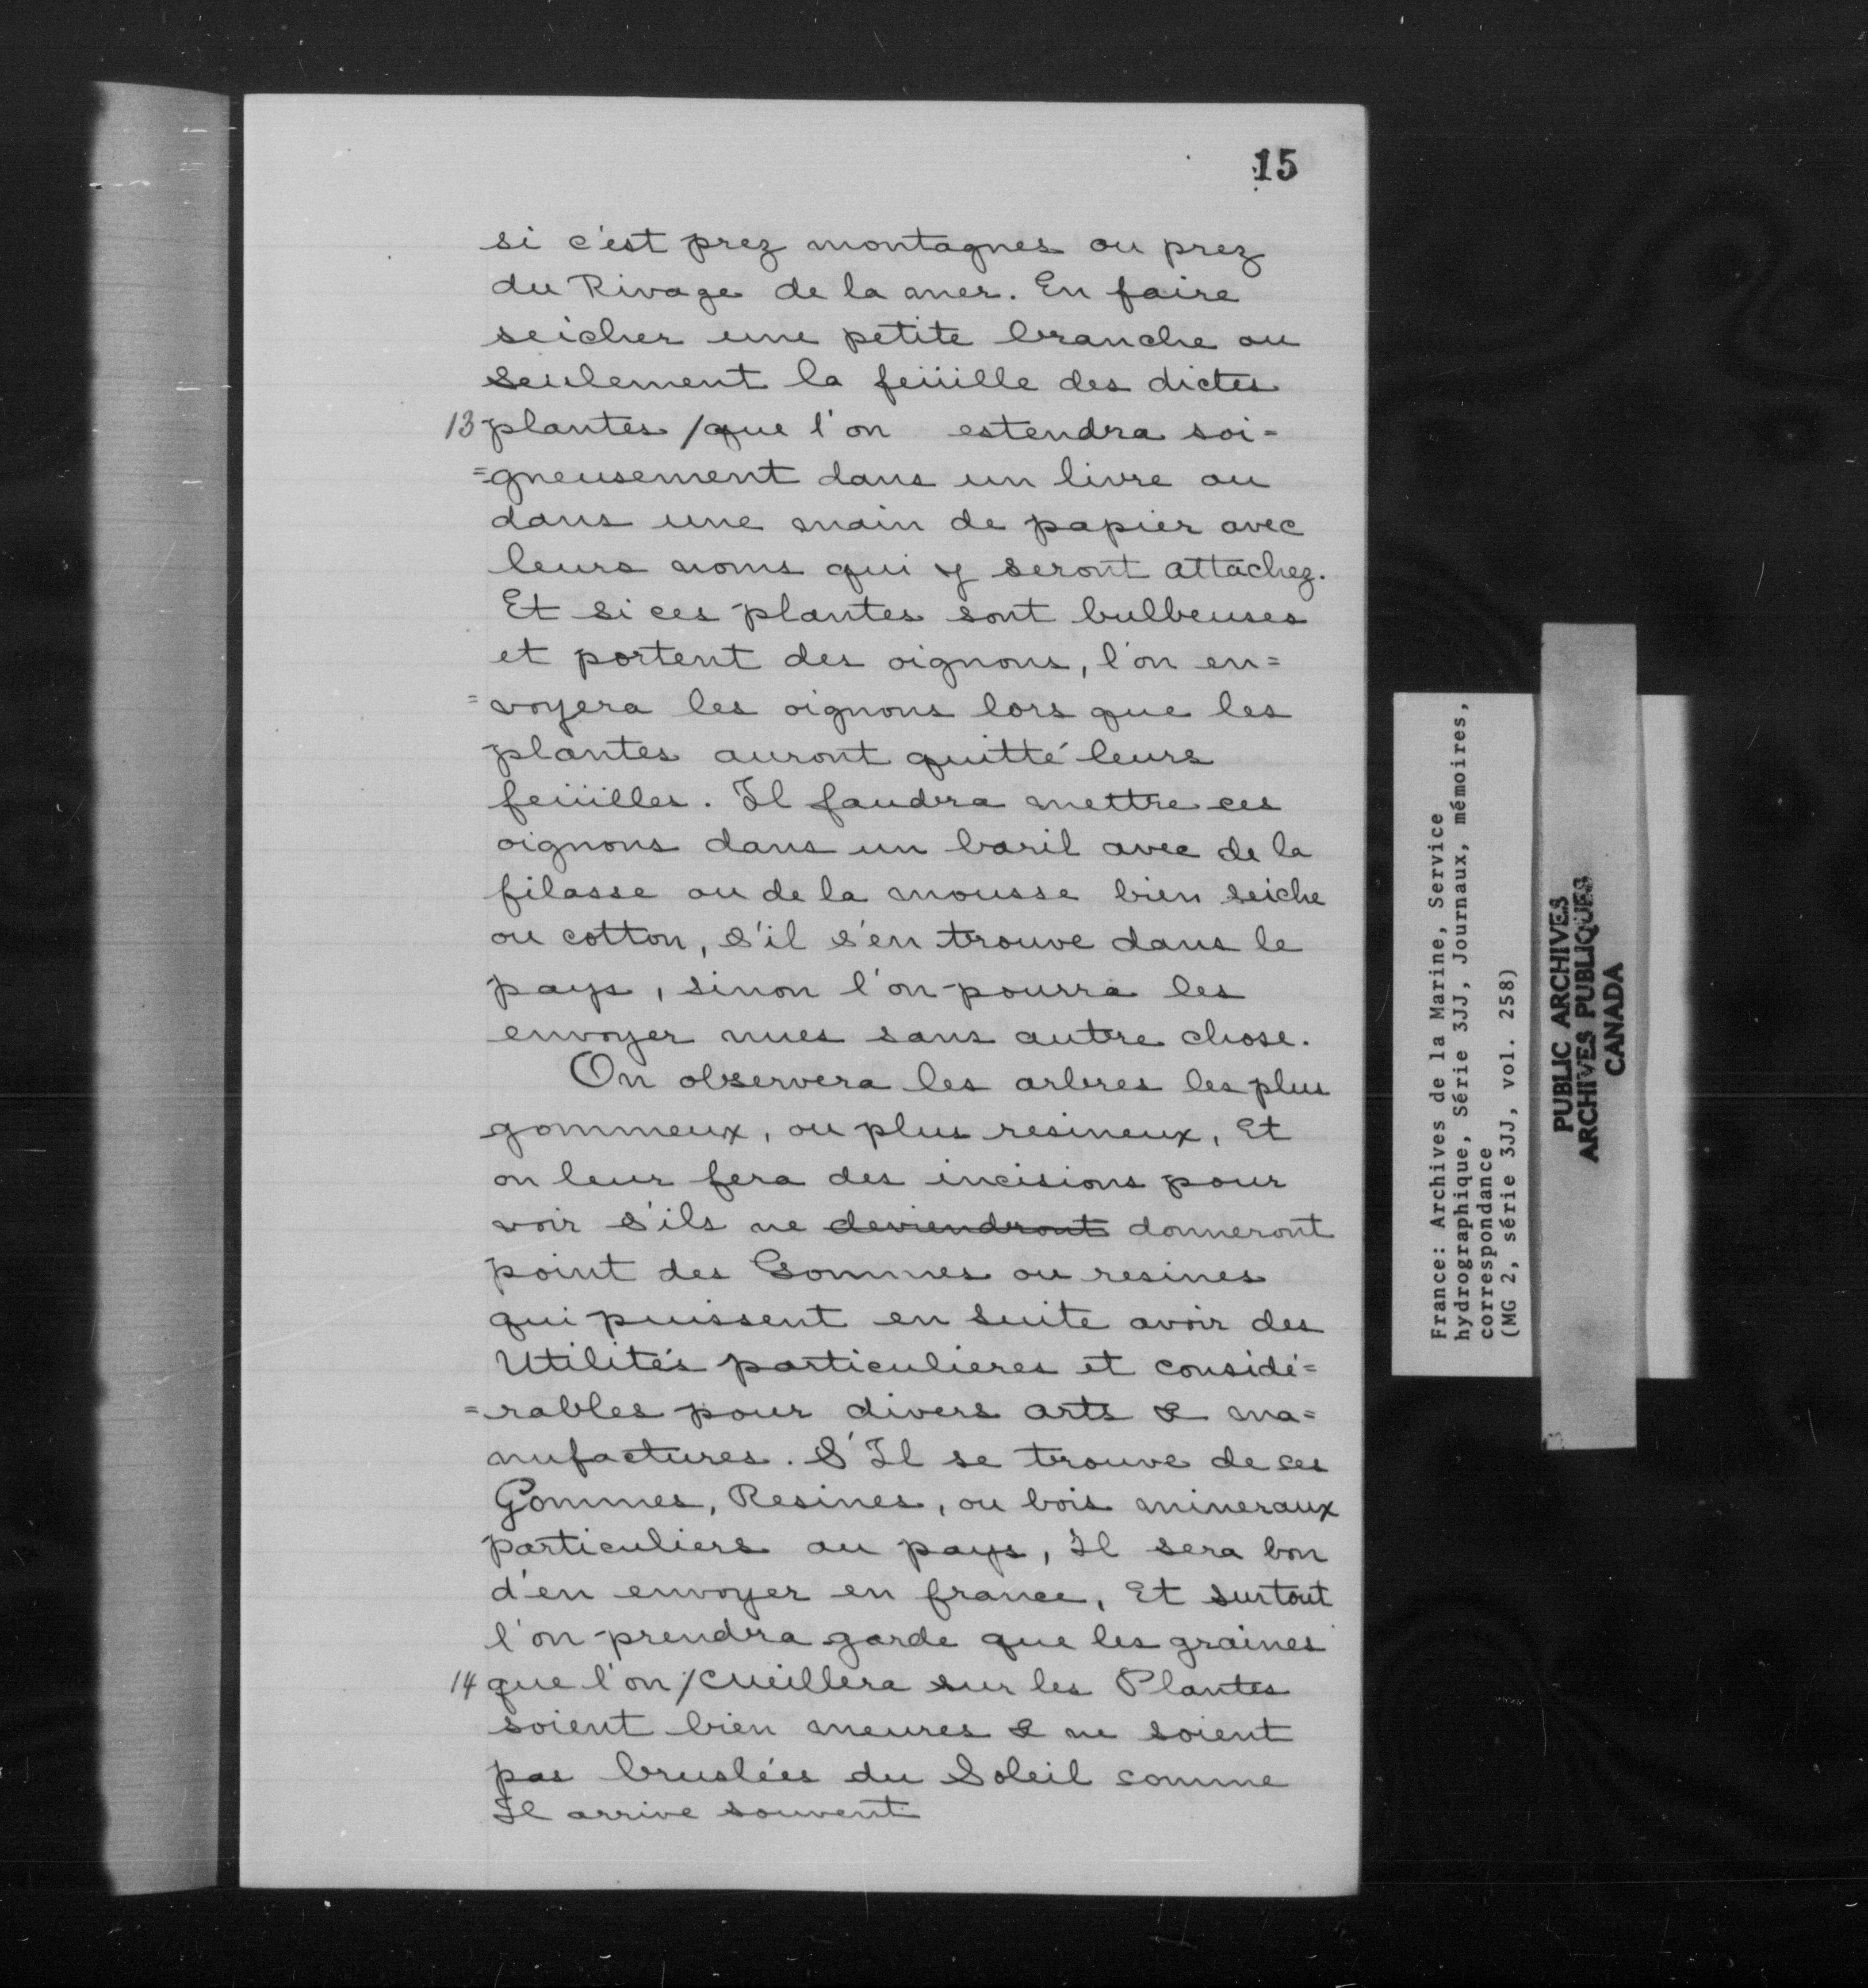 15
si c'est prez montagnes ou prez
du Rivage de la mer. En faire
seicher une petite branche ou
seulement la feüille des dictes
13 plantes /que l'on estendra soi=
=gneusement dans un livre ou
dans une main de papier avec
leurs noms qui y seront attachez.
Et si ces plantes sont bulbeuses
et portent des oignons, l'on en=
=voyera les oignons lors que les
plantes auront quitté leurs
feüilles. Il faudra mettre ces
oignons dans un baril avec de la
filasse ou de la mousse bien seiche
ou cotton, s'il s'en trouve dans le
pays, sinon l'on pourra les
envoyer nues sans autre chose.
On observera les arbres les plus
gommeux, ou plus resineux, Et
on leur fera des incisions pour
voir s'ils ne deviendront donneront
point des Gommes ou resines
qui puissent en suite avoir des
Utilités particulieres et considé=
=rables pour divers arts & ma=
nufactures. S'Il se trouve de ces
Gommes, Resines, ou bois mineraux
particuliers au pays, Il sera bon
d'en envoyer en france, Et surtout
l'on prendra garde que les graines
14 que l'on /cueillera sur les Plantes
soient bien meures & ne soient
pas bruslées du Soleil comme
Il arrive souvent
France: Archives de la Marine, Service
hydrographique, Série 3JJ, Journaux, mémoires,
correspondance
(MG 2, série 3JJ, vol. 258)
PUBLIC ARCHIVES
ARCHIVES PUBLIQUES
CANADA